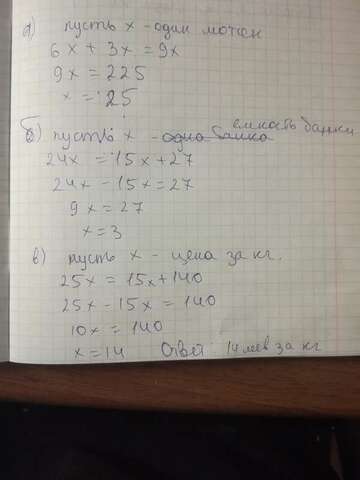 а) пусть х - один моток
6х + 3х = 9х
9х = 225
х = 25
б) пусть х - одна банка емкость банки
24х = 15х + 27
24х - 15х = 27
9х = 27
х = 3
в) пусть х - цена за кг.
25х = 15х + 140
25х - 15х = 140
10х = 140
х = 14 Ответ: 14 лев за кг